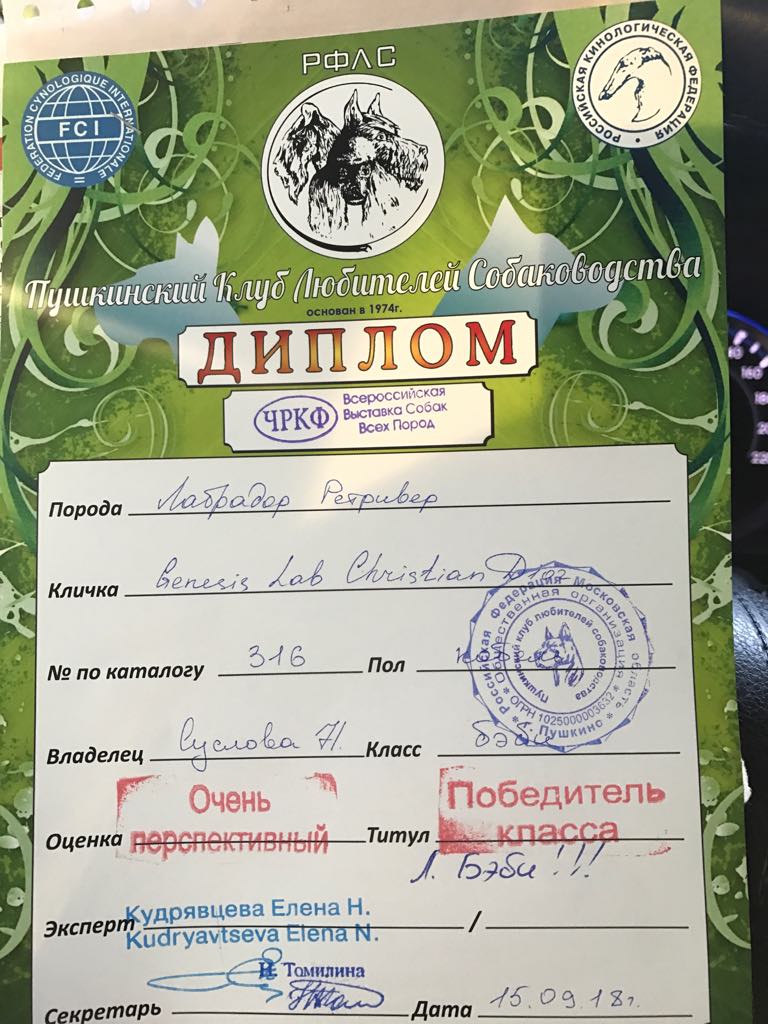 РФЛС
FEDERATION CYNOLOGIQUE INTERNATIONALE
FCI
РОССИЙСКАЯ КИНОЛОГИЧЕСКАЯ ФЕДЕРАЦИЯ
Пушкинский Клуб Любителей Собаководства
основан в 1974г.
ДИПЛОМ
ЧРКФ
Всероссийская
Выставка Собак
Всех Пород
Порода Лабрадор Ретривер
Кличка Genesis Lab Christian
№ по каталогу 316 Пол
Российская Федерация Московская область г. Пушкино
Общественная организация
Пушкинский клуб любителей собаководства
ОГРН 1025000003632
Владелец Суслова Н. Класс бэби
Оценка Очень перспективный Титул Победитель класса
Л. Бэби!!!
Эксперт Кудрявцева Елена Н. /
Kudryavtseva Elena N.
Томилина
Секретарь Дата 15.09.18г.
80
160
180
220